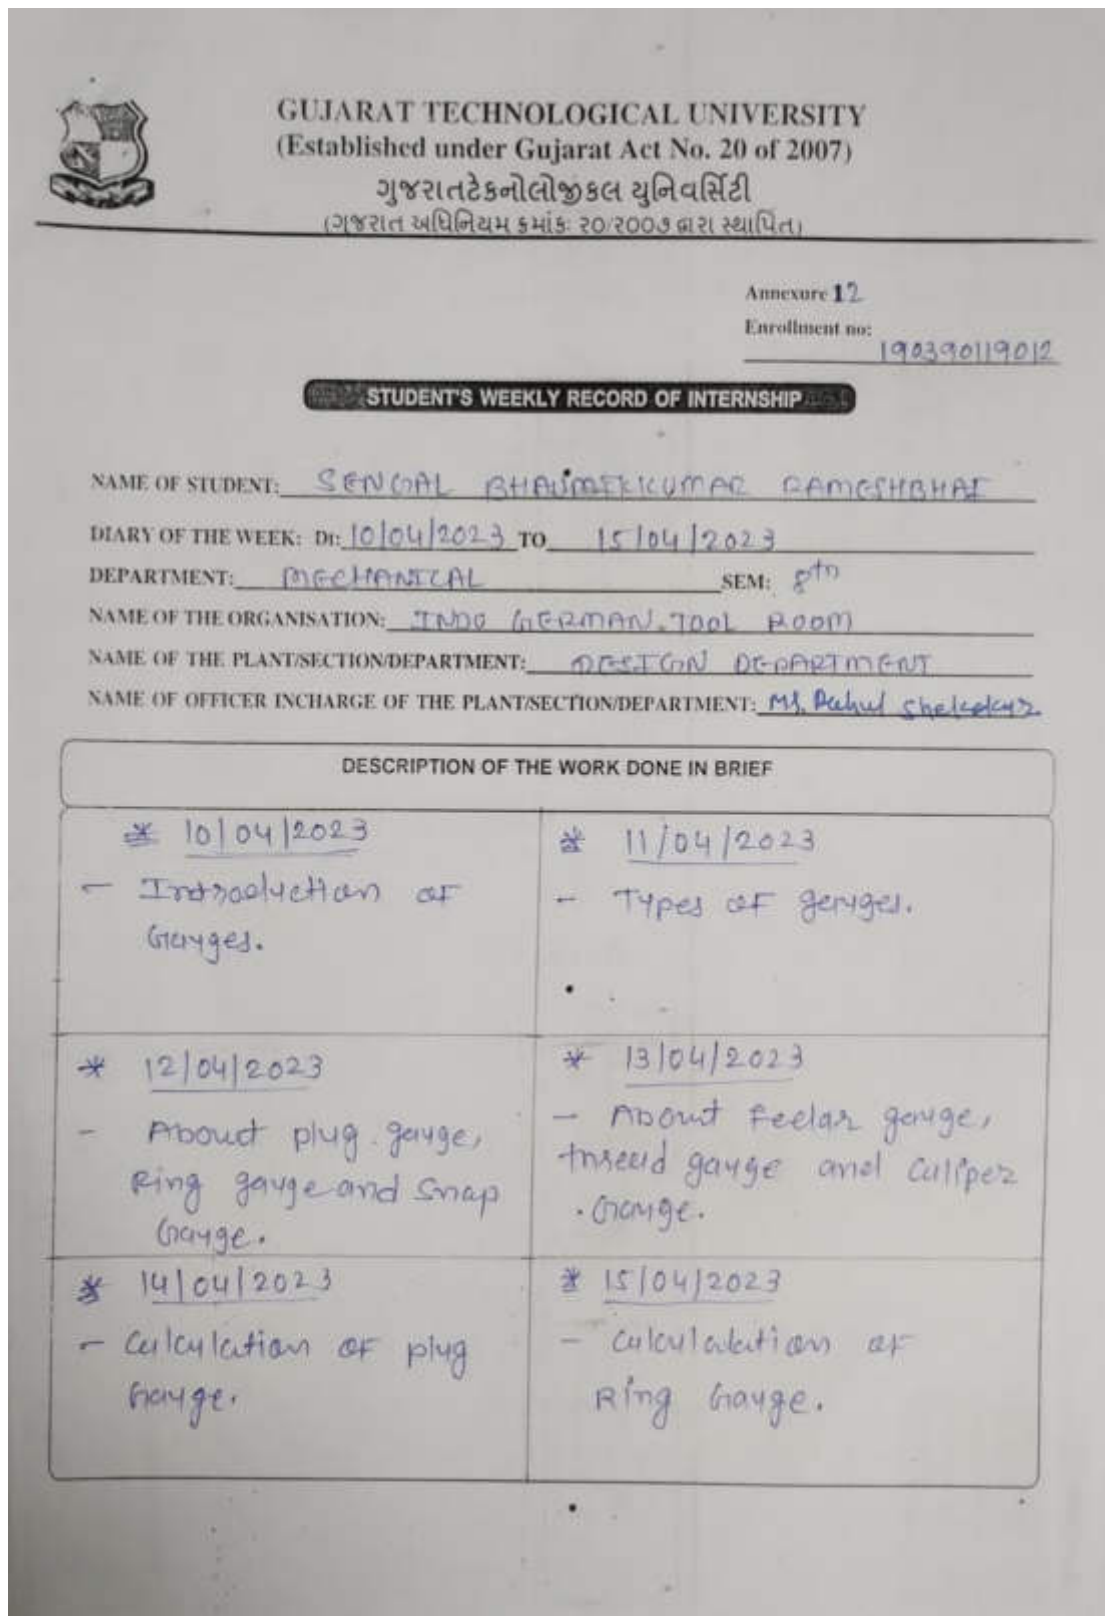 GUJARAT TECHNOLOGICAL UNIVERSITY
(Established under Gujarat Act No. 20 of 2007)
ગુજરાતટેકનોલોજીકલ યુનિવર્સિટી
(ગુજરાત અધિનિયમ ક્રમાંકઃ ૨૦/૨૦૦૭ દ્વારા સ્થાપિત)
Annexure 12
Enrollment no:
190390119012
STUDENT'S WEEKLY RECORD OF INTERNSHIP
NAME OF STUDENT: SENGAL BHAUMIKKUMAR RAMESHBHAI
DIARY OF THE WEEK: Dt: 10/04/2023 TO 15/04/2023
DEPARTMENT: MECHANICAL SEM: 8th
NAME OF THE ORGANISATION: INDO GERMAN TOOL ROOM
NAME OF THE PLANT/SECTION/DEPARTMENT: DESIGN DEPARTMENT
NAME OF OFFICER INCHARGE OF THE PLANT/SECTION/DEPARTMENT:
DESCRIPTION OF THE WORK DONE IN BRIEF
* 10/04/2023
- Introduction of
Gauges.
* 11/04/2023
- Types of gauges.
* 12/04/2023
- About plug gauge,
Ring gauge and Snap
Gauge.
* 13/04/2023
- About Feelar gauge,
thread gauge and caliper
Gauge.
* 14/04/2023
- Calculation of plug
Gauge.
* 15/04/2023
- Calculatation of
Ring Gauge.